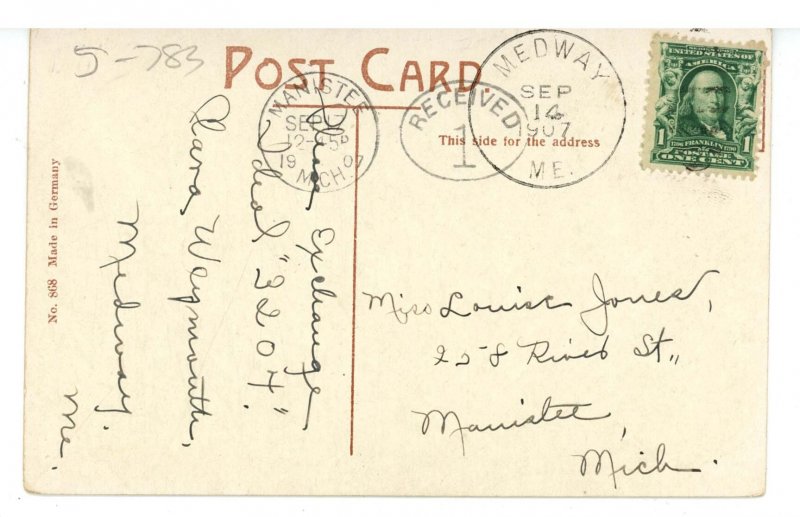 5-783
POST CARD.
MANISTEE
SEP 17
12-45P
19 07
MICH.
RECEIVED
1
MEDWAY
SEP
14
1907
ME.
UNITED STATES OF AMERICA
1790 FRANKLIN 1790
1 POSTAGE 1
ONE CENT
This side for the address
No. 868 Made in Germany
Please Exchange
Ideal "2204."
Clara Weymouth,
Medway.
Me.
Miss Louise Jones,
258 River St.,
Manistee,
Mich.